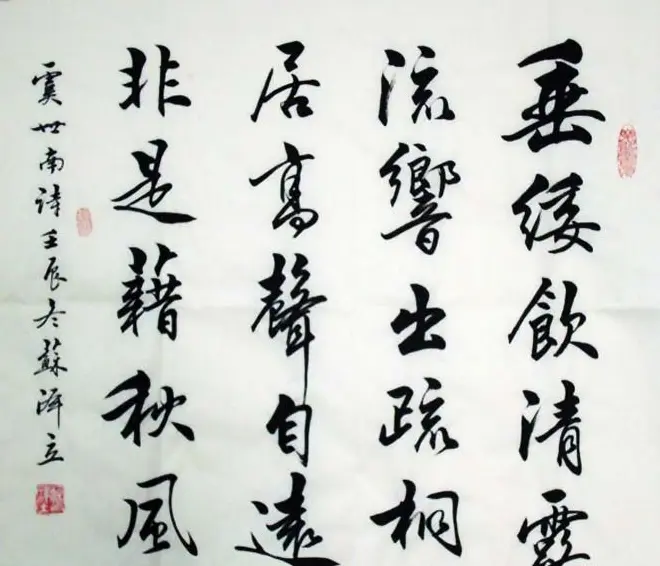 垂緌飲清露
流響出疏桐
居高聲自遠
非是藉秋風
虞世南詩壬辰冬蘇泽立